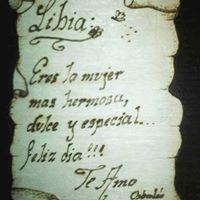 Libia:
Eres la mujer
mas hermosa,
dulce y especial...
feliz dia!!!
Te Amo